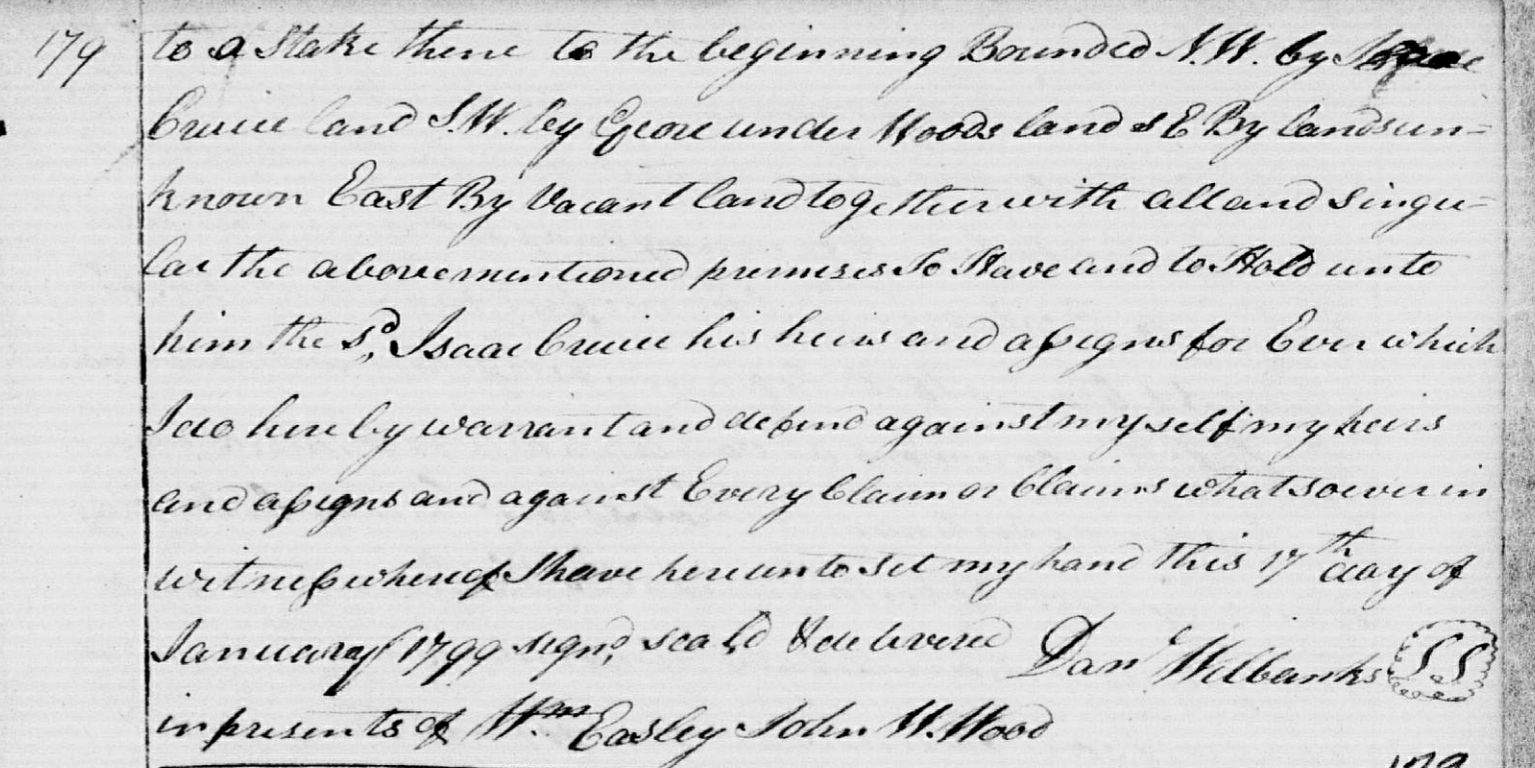 179 to a Stake thene to the beginning Bounded N.W. by Isaac
Cruce land S.W. by Geore under Woods land s E By lands un-
known East By Vacant land together with all and singu-
lar the above mentioned premises To Have and to Hold unto
him the sd. Isaac Cruce his heirs and assigns for Ever which
I do here by warrant and defend against my self my heirs
and assigns and against Every Claim or Claims whatsoever in
witness whereof I have here unto set my hand this 17th day of
January 1799 signd, seald & delivered Danl Wilbanks LS
in presents of Wm Easley John W. Wood